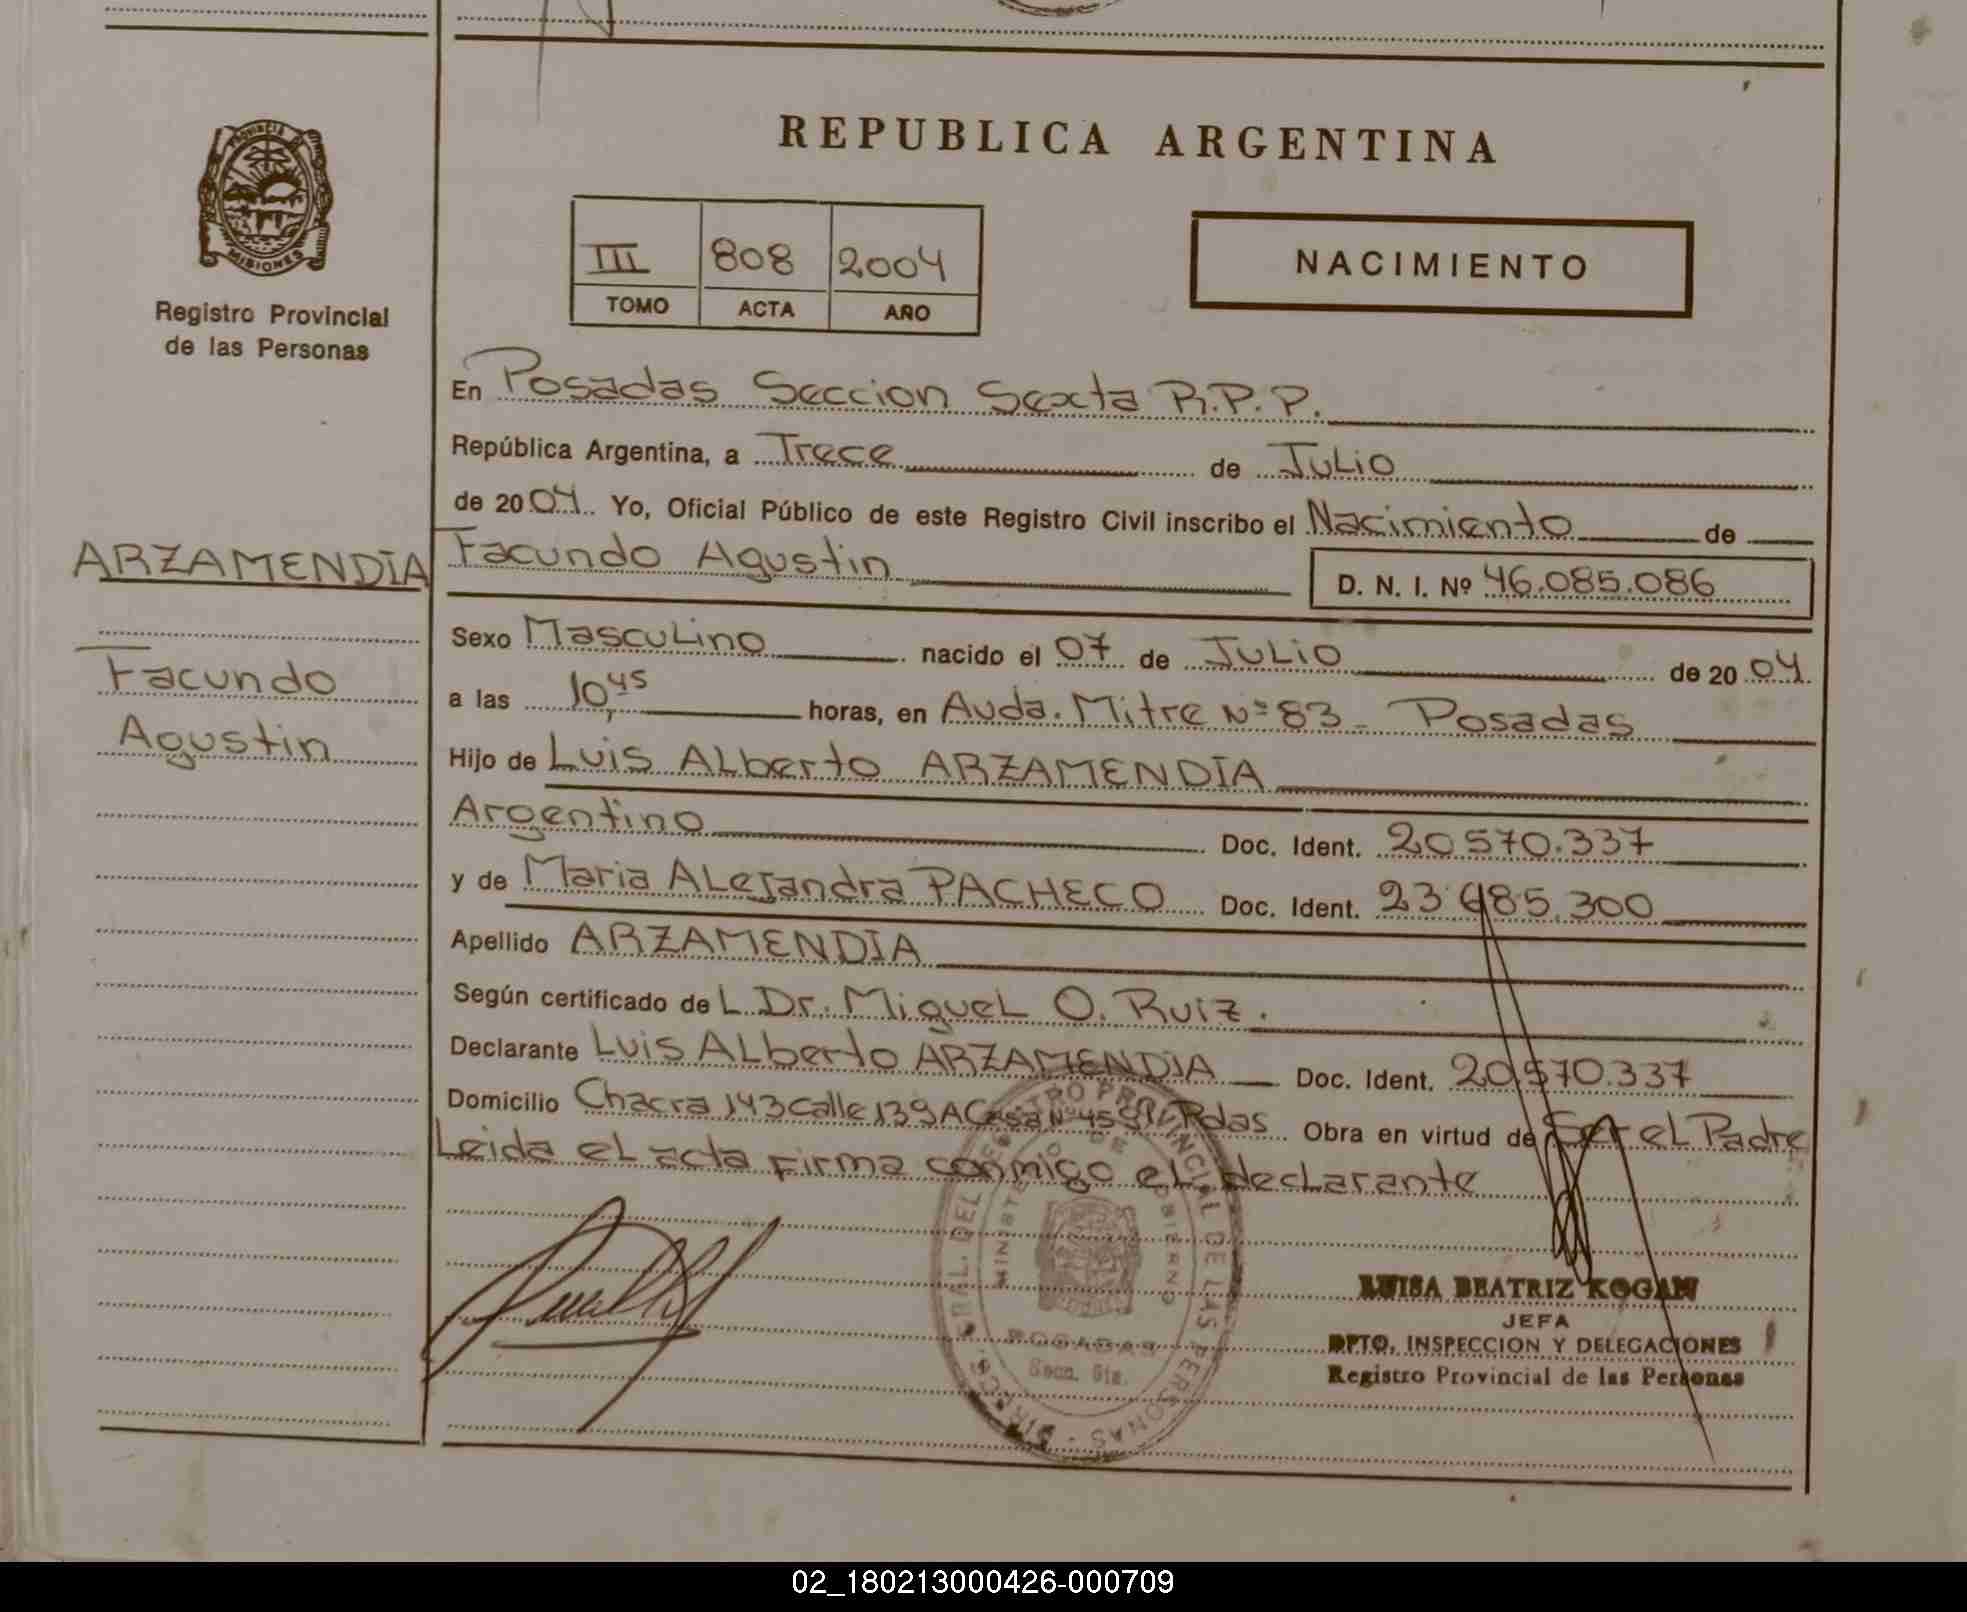 REPUBLICA ARGENTINA
PROVINCIA DE MISIONES
Registro Provincial
de las Personas
III 808 2004
TOMO ACTA AÑO
NACIMIENTO
En Posadas Seccion Sexta R.P.P.
República Argentina, a Trece de Julio
de 2004. Yo, Oficial Público de este Registro Civil inscribo el Nacimiento de
ARZAMENDIA
Facundo
Agustin
Facundo Agustin D. N. I. Nº 46.085.086
Sexo Masculino nacido el 07 de Julio de 2004.
a las 10,45 horas, en Avda. Mitre Nº 83 - Posadas
Hijo de Luis Alberto ARZAMENDIA
Argentino Doc. Ident. 20.570.337
y de Maria Alejandra PACHECO Doc. Ident.
Apellido ARZAMENDIA
Según certificado de L Dr. Miguel O. Ruiz.
Declarante Luis Alberto ARZAMENDIA Doc. Ident. 20.570.337
Domicilio Chacra 143 Calle 139 A Casa Nº Pdas Obra en virtud de Ser el Padre
Leida el acta firma conmigo el declarante
DIRECC. GRAL. DEL REGISTRO PROVINCIAL DE LAS PERSONAS
MINISTERIO DE GOBIERNO
POSADAS
Secc. 6ta.
LUISA BEATRIZ KOGAN
JEFA
DPTO. INSPECCION Y DELEGACIONES
Registro Provincial de las Personas
02_180213000426-000709